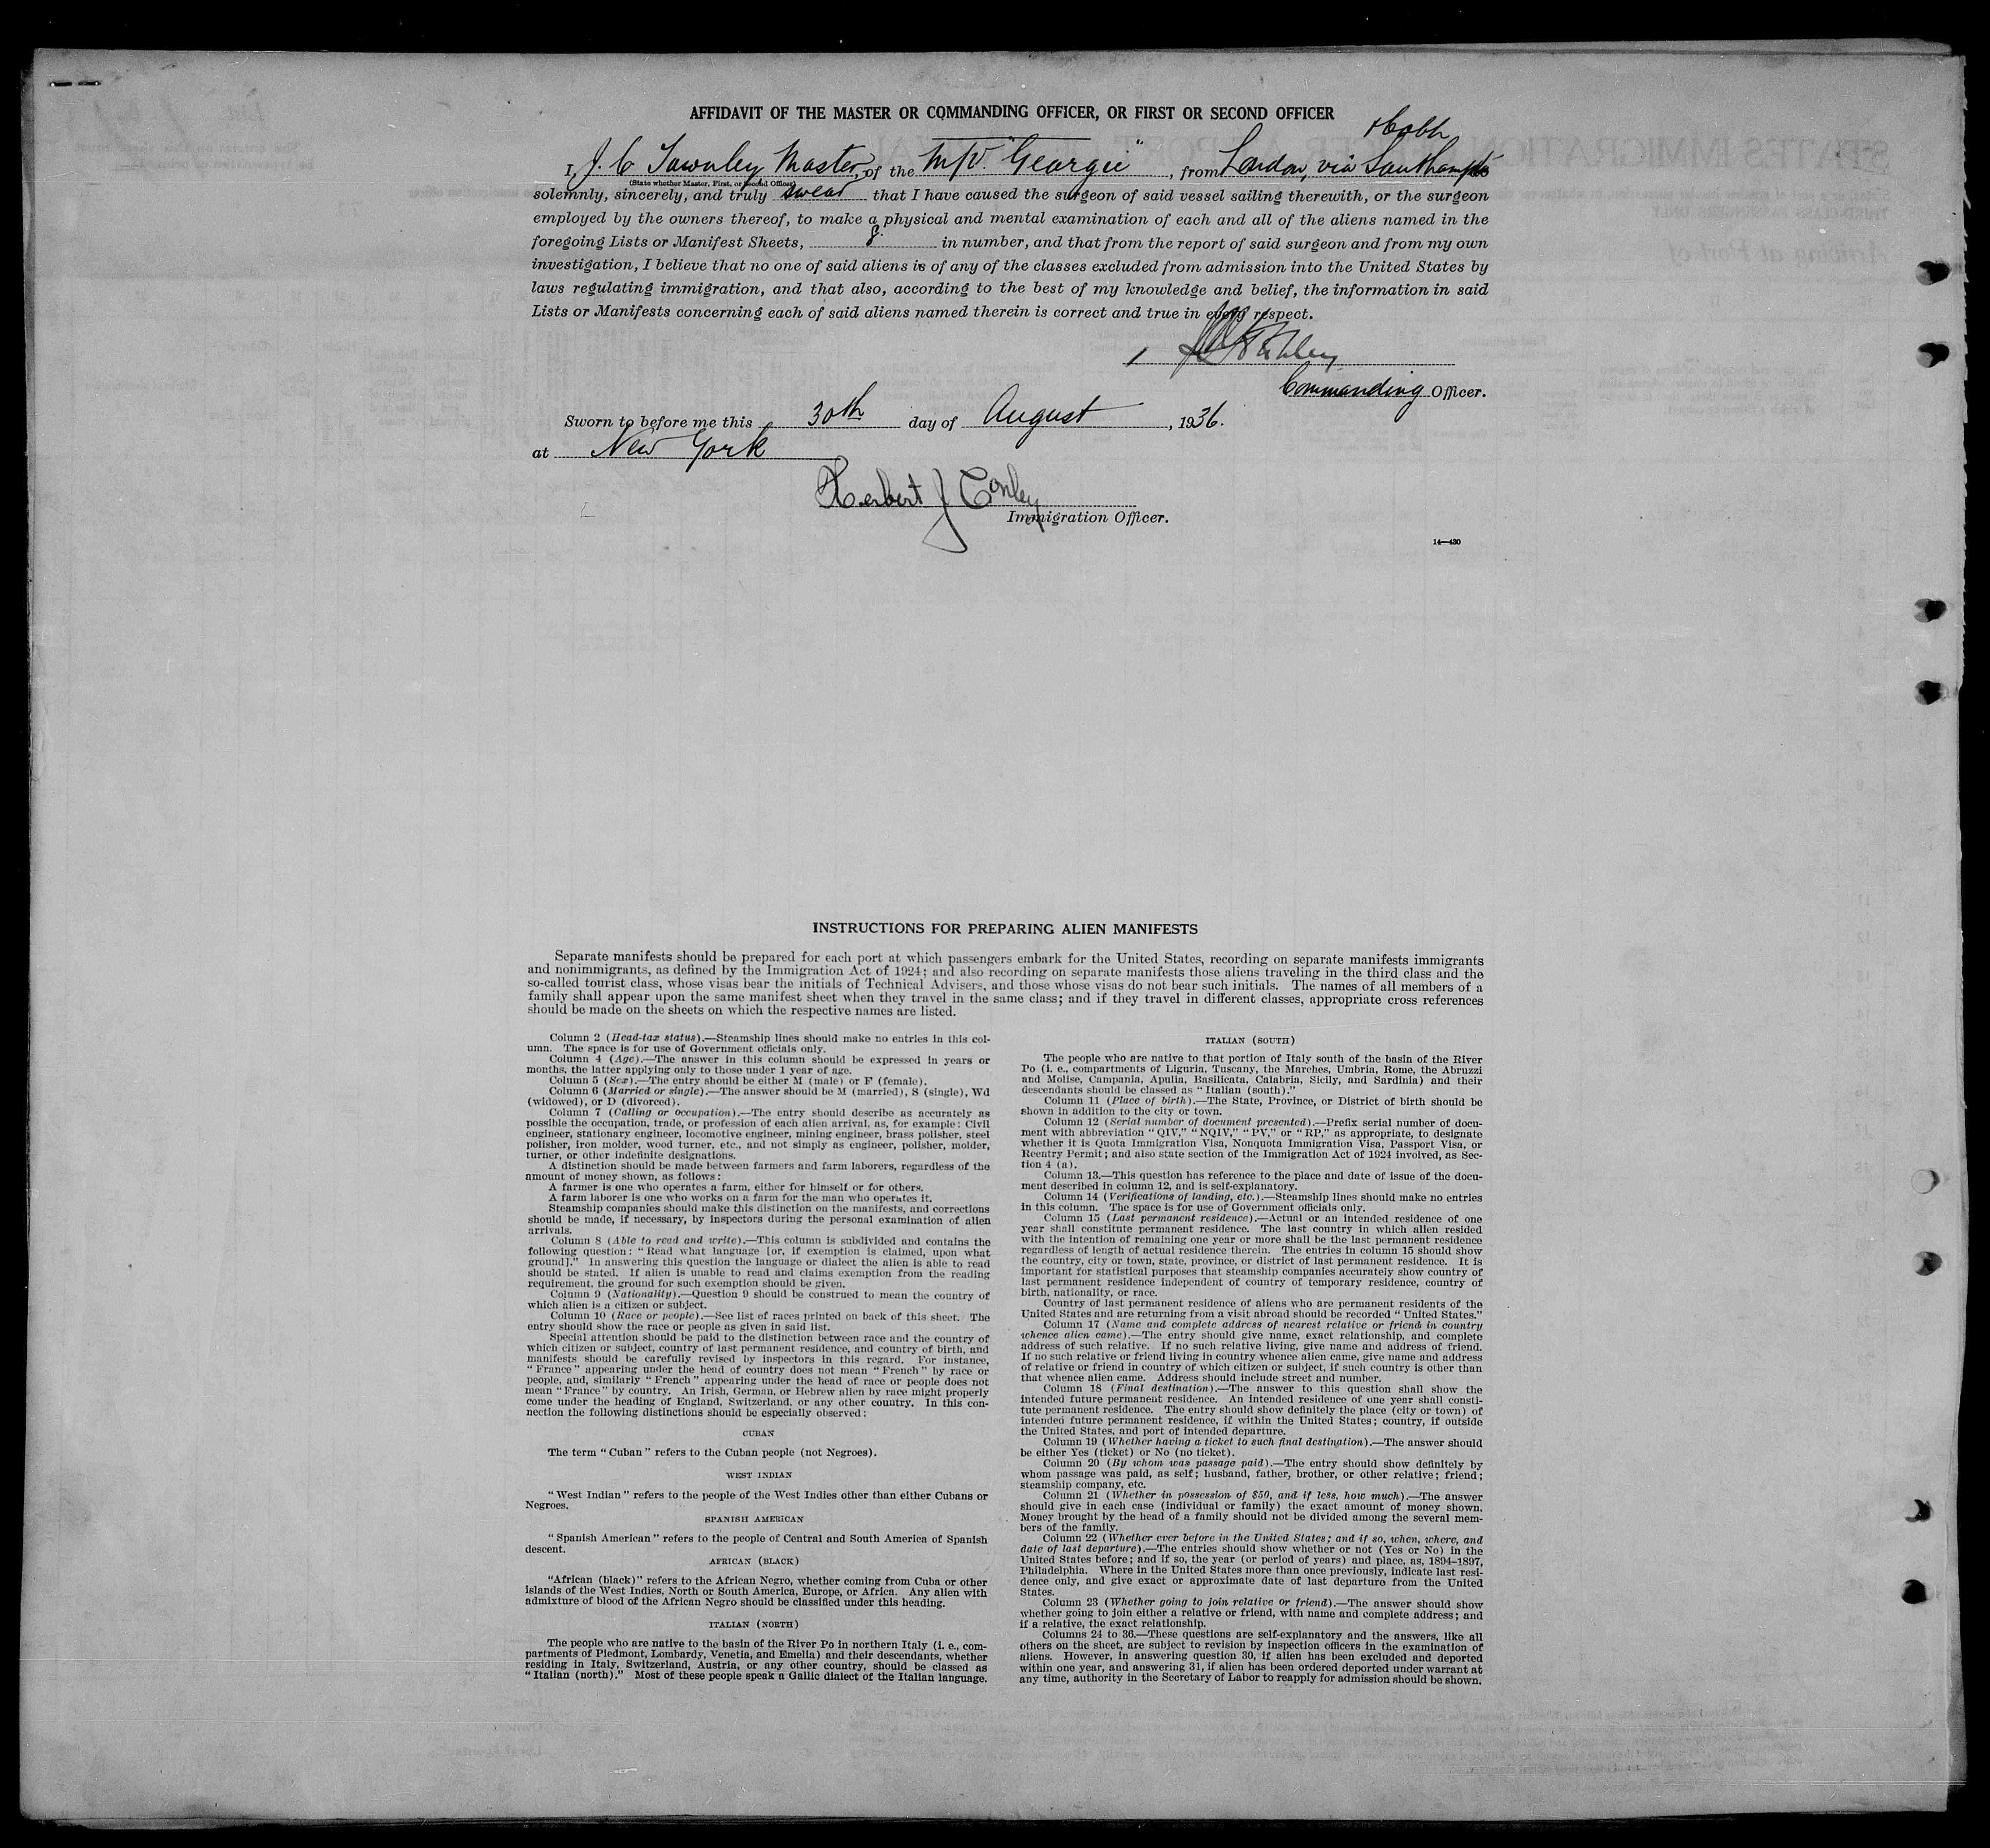 AFFIDAVIT OF THE MASTER OR COMMANDING OFFICER, OR FIRST OR SECOND OFFICER
+Cobh
I, J. C. Townley Master, of the M/V. "Georgic", from London, via Southampton
(State whether Master, First, or Second Officer)
solemnly, sincerely, and truly swear that I have caused the surgeon of said vessel sailing therewith, or the surgeon
employed by the owners thereof, to make a physical and mental examination of each and all of the aliens named in the
foregoing Lists or Manifest Sheets, 8. in number, and that from the report of said surgeon and from my own
investigation, I believe that no one of said aliens is of any of the classes excluded from admission into the United States by
laws regulating immigration, and that also, according to the best of my knowledge and belief, the information in said
Lists or Manifests concerning each of said aliens named therein is correct and true in every respect.
Commanding Officer.
Sworn to before me this 30th day of August, 1936.
at New York
Herbert J Conley
Immigration Officer.
14—430
INSTRUCTIONS FOR PREPARING ALIEN MANIFESTS
Separate manifests should be prepared for each port at which passengers embark for the United States, recording on separate manifests immigrants
and nonimmigrants, as defined by the Immigration Act of 1924; and also recording on separate manifests those aliens traveling in the third class and the
so-called tourist class, whose visas bear the initials of Technical Advisers, and those whose visas do not bear such initials. The names of all members of a
family shall appear upon the same manifest sheet when they travel in the same class; and if they travel in different classes, appropriate cross references
should be made on the sheets on which the respective names are listed.
Column 2 (Head-tax status).—Steamship lines should make no entries in this col-
umn. The space is for use of Government officials only.
Column 4 (Age).—The answer in this column should be expressed in years or
months, the latter applying only to those under 1 year of age.
Column 5 (Sex).—The entry should be either M (male) or F (female).
Column 6 (Married or single).—The answer should be M (married), S (single), Wd
(widowed), or D (divorced).
Column 7 (Calling or occupation).—The entry should describe as accurately as
possible the occupation, trade, or profession of each alien arrival, as, for example: Civil
engineer, stationary engineer, locomotive engineer, mining engineer, brass polisher, steel
polisher, iron molder, wood turner, etc., and not simply as engineer, polisher, molder,
turner, or other indefinite designations.
A distinction should be made between farmers and farm laborers, regardless of the
amount of money shown, as follows:
A farmer is one who operates a farm, either for himself or for others.
A farm laborer is one who works on a farm for the man who operates it.
Steamship companies should make this distinction on the manifests, and corrections
should be made, if necessary, by inspectors during the personal examination of alien
arrivals.
Column 8 (Able to read and write).—This column is subdivided and contains the
following question: "Read what language [or, if exemption is claimed, upon what
ground]." In answering this question the language or dialect the alien is able to read
should be stated. If alien is unable to read and claims exemption from the reading
requirement, the ground for such exemption should be given.
Column 9 (Nationality).—Question 9 should be construed to mean the country of
which alien is a citizen or subject.
Column 10 (Race or people).—See list of races printed on back of this sheet. The
entry should show the race or people as given in said list.
Special attention should be paid to the distinction between race and the country of
which citizen or subject, country of last permanent residence, and country of birth, and
manifests should be carefully revised by inspectors in this regard. For instance,
"France" appearing under the head of country does not mean "French" by race or
people, and, similarly "French" appearing under the head of race or people does not
mean "France" by country. An Irish, German, or Hebrew alien by race might properly
come under the heading of England, Switzerland, or any other country. In this con-
nection the following distinctions should be especially observed:
CUBAN
The term "Cuban" refers to the Cuban people (not Negroes).
WEST INDIAN
"West Indian" refers to the people of the West Indies other than either Cubans or
Negroes.
SPANISH AMERICAN
"Spanish American" refers to the people of Central and South America of Spanish
descent.
AFRICAN (BLACK)
"African (black)" refers to the African Negro, whether coming from Cuba or other
islands of the West Indies, North or South America, Europe, or Africa. Any alien with
admixture of blood of the African Negro should be classified under this heading.
ITALIAN (NORTH)
The people who are native to the basin of the River Po in northern Italy (i. e., com-
partments of Piedmont, Lombardy, Venetia, and Emelia) and their descendants, whether
residing in Italy, Switzerland, Austria, or any other country, should be classed as
"Italian (north)." Most of these people speak a Gallic dialect of the Italian language.
ITALIAN (SOUTH)
The people who are native to that portion of Italy south of the basin of the River
Po (i. e., compartments of Liguria, Tuscany, the Marches, Umbria, Rome, the Abruzzi
and Molise, Campania, Apulia, Basilicata, Calabria, Sicily, and Sardinia) and their
descendants should be classed as "Italian (south)."
Column 11 (Place of birth).—The State, Province, or District of birth should be
shown in addition to the city or town.
Column 12 (Serial number of document presented).—Prefix serial number of docu-
ment with abbreviation "QIV," "NQIV," "PV," or "RP," as appropriate, to designate
whether it is Quota Immigration Visa, Nonquota Immigration Visa, Passport Visa, or
Reentry Permit; and also state section of the Immigration Act of 1924 involved, as Sec-
tion 4 (a).
Column 13.—This question has reference to the place and date of issue of the docu-
ment described in column 12, and is self-explanatory.
Column 14 (Verifications of landing, etc.).—Steamship lines should make no entries
in this column. The space is for use of Government officials only.
Column 15 (Last permanent residence).—Actual or an intended residence of one
year shall constitute permanent residence. The last country in which alien resided
with the intention of remaining one year or more shall be the last permanent residence
regardless of length of actual residence therein. The entries in column 15 should show
the country, city or town, state, province, or district of last permanent residence. It is
important for statistical purposes that steamship companies accurately show country of
last permanent residence independent of country of temporary residence, country of
birth, nationality, or race.
Country of last permanent residence of aliens who are permanent residents of the
United States and are returning from a visit abroad should be recorded "United States."
Column 17 (Name and complete address of nearest relative or friend in country
whence alien came).—The entry should give name, exact relationship, and complete
address of such relative. If no such relative living, give name and address of friend.
If no such relative or friend living in country whence alien came, give name and address
of relative or friend in country of which citizen or subject, if such country is other than
that whence alien came. Address should include street and number.
Column 18 (Final destination).—The answer to this question shall show the
intended future permanent residence. An intended residence of one year shall consti-
tute permanent residence. The entry should show definitely the place (city or town) of
intended future permanent residence, if within the United States; country, if outside
the United States, and port of intended departure.
Column 19 (Whether having a ticket to such final destination).—The answer should
be either Yes (ticket) or No (no ticket).
Column 20 (By whom was passage paid).—The entry should show definitely by
whom passage was paid, as self; husband, father, brother, or other relative; friend;
steamship company, etc.
Column 21 (Whether in possession of $50, and if less, how much).—The answer
should give in each case (individual or family) the exact amount of money shown.
Money brought by the head of a family should not be divided among the several mem-
bers of the family.
Column 22 (Whether ever before in the United States; and if so, when, where, and
date of last departure).—The entries should show whether or not (Yes or No) in the
United States before; and if so, the year (or period of years) and place, as, 1894–1897,
Philadelphia. Where in the United States more than once previously, indicate last resi-
dence only, and give exact or approximate date of last departure from the United
States.
Column 23 (Whether going to join relative or friend).—The answer should show
whether going to join either a relative or friend, with name and complete address; and
if a relative, the exact relationship.
Columns 24 to 36.—These questions are self-explanatory and the answers, like all
others on the sheet, are subject to revision by inspection officers in the examination of
aliens. However, in answering question 30, if alien has been excluded and deported
within one year, and answering 31, if alien has been ordered deported under warrant at
any time, authority in the Secretary of Labor to reapply for admission should be shown.